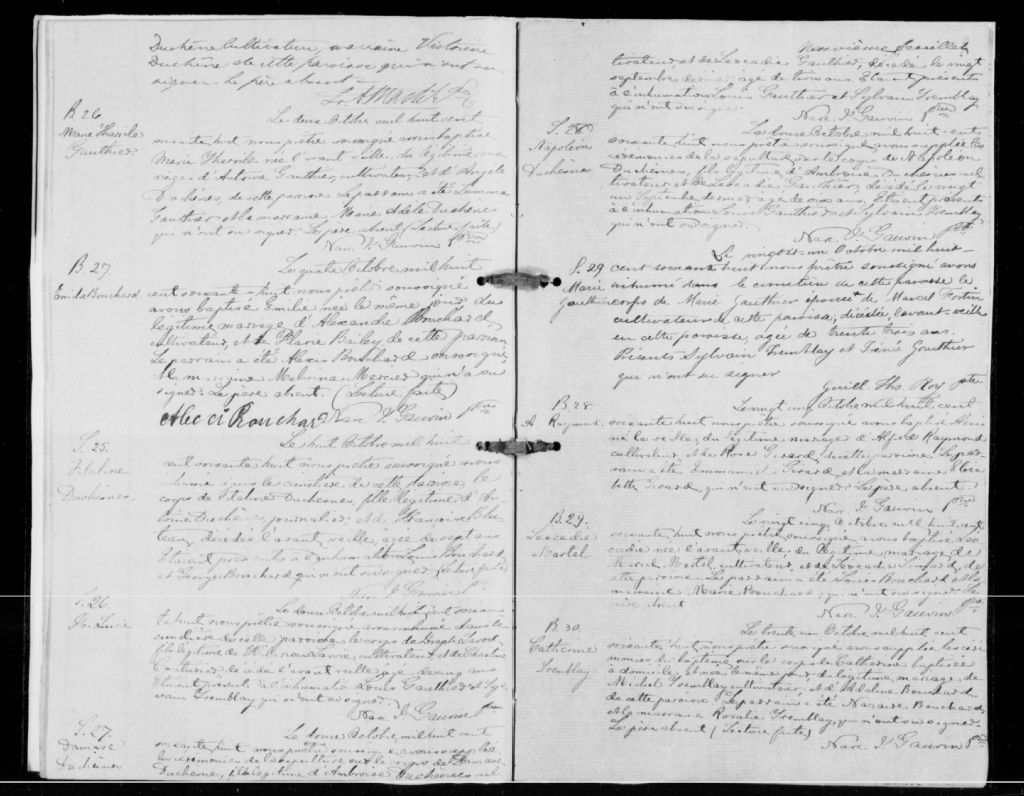 Duchêne cultivateur, marraine Victorine
Duchêne de cette paroisse qui n'ont su
signer. Le père absent.
B. 26
Marie
Gauthier
Le deux Octobre mil huit cent
soixante huit, nous prêtre soussigné avons baptisé
Marie née l'avant veille, du légitime ma-
riage d'Antoine Gauthier, cultivateur, et d'Angèle
Duchênes, de cette paroisse. Le parrain a été
Gauthier et la marraine Marie Adèle Duchênes
qui n'ont su signer. Le père absent. (Lecture faite)
Nar. J. Gauvin Ptre
B. 27.
Emilie Bouchard
Le quatre Octobre mil huit
cent soixante huit, nous prêtre soussigné
avons baptisé Emilie née le même jour du
légitime mariage d'Alexandre Bouchard,
cultivateur, et de Flavie Bailey, de cette paroisse.
Le parrain a été Alexis Bouchard soussigné
la marraine Malvina Mercier qui n'a su
signer. Le père absent. (Lecture faite)
Nar. J. Gauvin Ptre
S. 25.
Duchesnes.
Le huit Octobre mil huit
cent soixante huit nous prêtre soussigné avons
inhumé dans le cimetière de cette paroisse le
corps de Duchesnes, fille légitime d'An-
toine Duchênes, journalier, et de Françoise Blu-
teau, décédée l'avant veille, agée de sept ans
Etaient présents à l'inhumation Louis Bouchard
et George Bouchard qui n'ont su signer. (Lecture faite)
Nar. J. Gauvin Ptre
S. 26.
Le douze Octobre mil huit cent soixan-
te huit nous prêtre soussigné avons inhumé dans le
cimetière de cette paroisse le corps de Joseph
fils légitime de cultivateur, et de
décédé l'avant veille, agé de cinq ans
Etaient présents à l'inhumation Louis Gauthier et Syl-
vain Tremblay qui n'ont su signer.
Nar. J. Gauvin Ptre
S. 27.
Damase
Duchênes
Le douze Octobre mil huit cent
soixante huit nous prêtre soussigné avons suppléé
les cérémonies de la sépulture sur le corps de Damase
Duchesnes, fils légitime d'Ambroise Duchesnes cul
Neuvième feuillet
tivateur et de Léocadie Gauthier, décédé le vingt
septembre dernier, agé de trois ans. Etaient présents
à l'inhumation Louis Gauthier et Sylvain Tremblay
qui n'ont su signer.
Nar. J. Gauvin Ptre
S. 28
Napoléon
Duchesnes.
Le douze Octobre mil huit cent
soixante huit nous prêtre soussigné avons suppléé les
cérémonies de la sépulture sur le corps de Napoléon
Duchênes, fils légitime d'Ambroise Duchesnes cul-
tivateur et de Léocadie Gauthier, décédé le vingt
un Septembre dernier, agé de ans. Etaient présents
à l'inhumation Louis Gauthier et Sylvain Tremblay
qui n'ont su signer.
Nar. J. Gauvin Ptre
S. 29
Marie
Gauthier
Le vingt et un Octobre mil huit-
cent soixante huit nous prêtre soussigné avons
inhumé dans le cimetière de cette paroisse le
corps de Marie Gauthier épouse de Marcel Fortin
cultivateur de cette paroisse, décédée l'avant-veille
en cette paroisse, agée de trente trois ans.
Présents Sylvain Tremblay et Irénée Gauthier
qui n'ont su signer
Guill. Ths. Roy Ptre
B. 28
A Raymond
Le vingt cinq Octobre mil huit cent
soixante huit nous prêtre soussigné avons baptisé
né la veille, du légitime mariage d'Alfred Raymond
cultivateur, et de Rose Girard, de cette paroisse. Le par-
rain a été Emmanuel Girard et la marraine Eliza-
beth Girard, qui n'ont su signer. Le père absent.
Nar. J. Gauvin Ptre
B. 29.
Léocadie
Martel.
Le vingt cinq Octobre mil huit cent
soixante huit nous prêtre soussigné avons baptisé Léo-
cadie née l'avant veille du légitime mariage de
Martel, cultivateur, et de Léocadie de
cette paroisse. Le parrain a été Louis Bouchard et la
marraine Marie Bouchard, qui n'ont su signer. Le
père absent
Nar. J. Gauvin Ptre
B. 30.
Catherine
Tremblay.
Le trente un Octobre mil huit cent
soixante huit nous prêtre soussigné avons suppléé les céré-
monies du baptême sur le corps de Catherine baptisée
à domicile et née le même jour, du légitime mariage de
Michel Tremblay cultivateur et d'Adeline Bouchard
de cette paroisse. Le parrain a été Nazaire Bouchard
et la marraine Rosalie Tremblay, qui n'ont su signer.
Le père absent (Lecture faite)
Nar. J. Gauvin Ptre